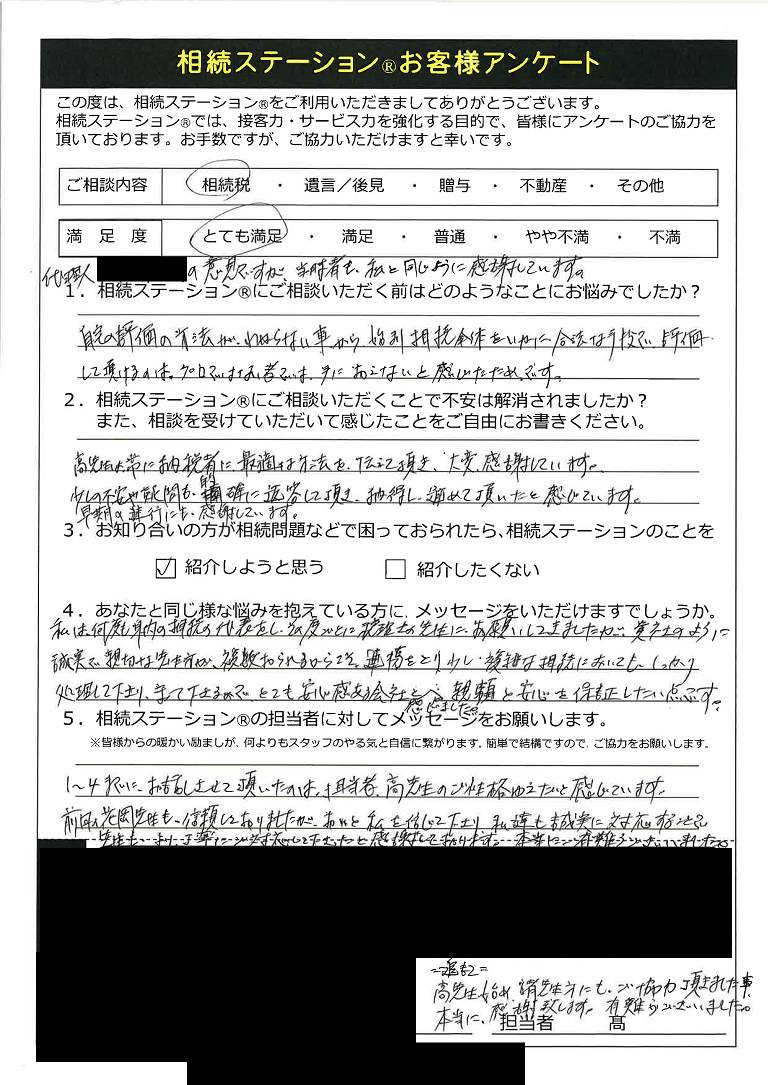 相続ステーション®お客様アンケート
この度は、相続ステーション®をご利用いただきましてありがとうございます。
相続ステーション®では、接客力・サービス力を強化する目的で、皆様にアンケートのご協力を
頂いております。お手数ですが、ご協力いただけますと幸いです。
ご相談内容 相続税 ・ 遺言／後見 ・ 贈与 ・ 不動産 ・ その他
満 足 度 とても満足 ・ 満足 ・ 普通 ・ やや不満 ・ 不満
代理人 の意見ですが、当時者も、私と同じように感謝しています。
1．相続ステーション®にご相談いただく前はどのようなことにお悩みでしたか？
自宅の評価の方法が、わからない事から、始まり相続全体をいかに合法な手段で、評価
して頂けるのは、プロではない者では、手におえないと感じたためです。
2．相続ステーション®にご相談いただくことで不安は解消されましたか？
また、相談を受けていただいて感じたことをご自由にお書きください。
高先生は常に納税者に、最適な方法を、伝えて頂き、大変、感謝しています。
少しの不安や疑問も、的確に返答して頂き、納得し、進めて頂いたと感じています。
早期の進行にも、感謝しています。
3．お知り合いの方が相続問題などで困っておられたら、相続ステーションのことを
☑ 紹介しようと思う □ 紹介したくない
4．あなたと同じ様な悩みを抱えている方に、メッセージをいただけますでしょうか。
私は何度も身内の相続の代表をし、その度ごとに税理士の先生に、お願いしてきましたが、貴社のように
誠実で親切な先生方が、複数おられるからこそ、連携をとり少し複雑な相続においても、しっかり
処理して下さり、まで下さるので、とても安心感ある会社と感じました。親頼と安心を保証したい点です。
5．相続ステーション®の担当者に対してメッセージをお願いします。
※皆様からの暖かい励ましが、何よりもスタッフのやる気と自信に繋がります。簡単で結構ですので、ご協力をお願いします。
1～4までに、お話しさせて頂いたのは、担当者、高先生のご性格ゆえだと感じています。
前回の花岡先生も、信頼しておりましたが、私を信じて下さり 私達も誠実に対応すること
先生も、より丁寧にご対応して下さったと感謝しております。本当に、有難うございました。
=追記=
高先生始め、諸先生方にも、ご協力頂きました事、
本当に、感謝致します。有難うございました。
担当者 髙